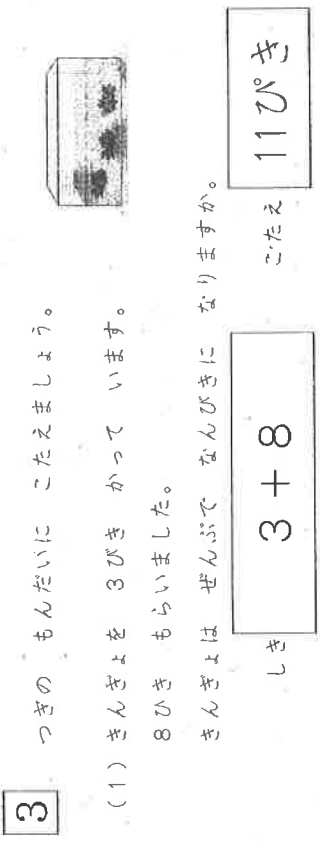 3
つぎの もんだいに こたえましょう。
(1) きんぎょを 3びき かって います。
8ひき もらいました。
きんぎょは ぜんぶで なんびきに なりますか。
しき 3+8 こたえ 11ぴき